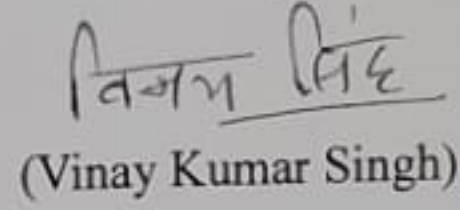 विनय सिंह
(Vinay Kumar Singh)